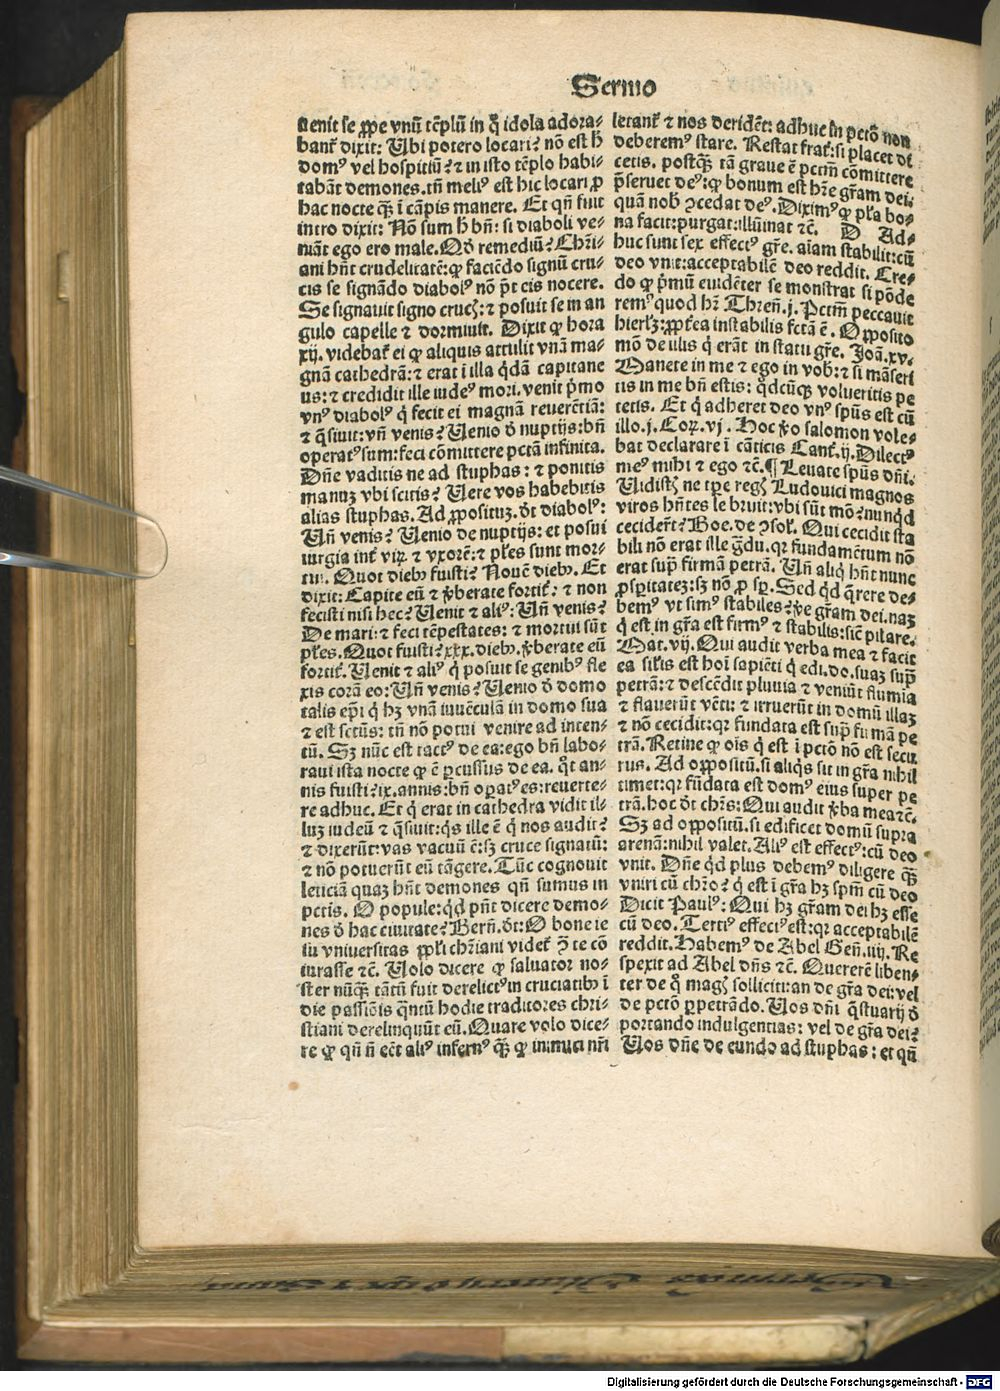 Sermo
uenit se ꝓpe vnū tēplū in q̊ idola adora-
banꝉ dixit: Ubi potero locari? nō est h̄
domꝰ vel hospitiū? ⁊ in isto tēplo habi-
tabāt demones. tñ meliꝰ est hic locari ꝓ
hac nocte q̄ȝ ī cāpis manere. Et qñ fuit
intro dixit: Nō sum h̄ bñ: si diaboli ve-
niāt ego ero male. Qđ remediū? Chr̄i-
ani hñt crudelitatē: ꝙ faciēdo signū cru-
cis se signādo diabolꝰ nō p̄t eis nocere.
Se signauit signo crucꝭ: ⁊ posuit se in an
gulo capelle ⁊ dormiuit. Dixit ꝙ hora
xij. videbaꝉ ei ꝙ aliquis attulit vnā ma-
gnā cathedrā: ⁊ erat ī illa q̄dā capitane
us: ⁊ credidit ille iudeꝰ mori. venit p̄mo
vnꝰ diabolꝰ q̇ fecit ei magnā reuerētiā:
⁊ q̄siuit: vñ venis? Uenio đ nuptijs: bñ
operatꝰ sum: feci cōmittere pctā infinita.
Dñe vaditis ne ad stuphas: ⁊ ponitis
manuȝ vbi scitis? Uere vos habebitis
alias stuphas. Ad ꝓposituȝ. đt diabolꝰ:
Uñ venis? Uenio de nuptijs: et posui
iurgia inꝉ viꝝ ⁊ vxorē: ⁊ pl̄es sunt mor-
tui. Quot dieb fuisti? Nouē dieb. Et
dixit: Capite eū ⁊ v̄berate fortiꝉ: ⁊ non
fecisti nisi hec? Uenit ⁊ aliꝰ: Uñ venis?
De mari: ⁊ feci tēpestates: ⁊ mortui sūt
pl̄es. Quot fuisti? xxx. dieb. v̄berate eū
fortiꝉ. Uenit ⁊ aliꝰ q̇ posuit se genibꝰ fle
xis corā eo: Uñ venis? Uenio đ domo
talis ep̄i q̇ hȝ vnā iuuēculā in domo sua
⁊ est sctūs: tñ nō potui venire ad inten-
tū. Sȝ nūc est tactꝰ de ea: ego bñ labo-
raui ista nocte ꝙ ē ꝑcussus de ea. q̊t an-
nis fuisti? ix. annis: bñ oꝑatꝰ es: reuerte-
re adhuc. Et q̇ erat in cathedra vidit il-
luȝ iudeū ⁊ q̄siuit: q̇s ille ē q̇ nos audit?
⁊ dixerūt: vas vacuū ē: sȝ cruce signatū:
⁊ nō potuerūt eū tāgere. Tūc cognouit
leticiā quaȝ hñt demones qñ sumus in
pctis. O popule: q̇d pñt dicere demo-
nes đ hac ciuitate? Berñ. đt: O bone ie
su vniuersitas ppl̄i chr̄iani videꝉ ꝯ̄ te cō
iurasse ⁊c̄. Uolo dicere ꝙ saluator no-
ster nūq̄ȝ tātū fuit derelictꝰ in cruciatib ī
die passiōis q̄ntū hodie traditores chri-
stiani derelinquūt eū. Quare volo dice-
re ꝙ qñ ñ eēt aliꝰ infernꝰ q̄ȝ ꝙ inimici nr̄i
letanꝉ ⁊ nos deridēt: adhuc in pctō non
deberemꝰ stare. Restat fraꝉ: si placet di
cetis. postq̄ȝ tā graue ē pctm̄ cōmittere
p̄seruet deꝰ: ꝙ bonum est hr̄e gr̄am dei.
quā nob ꝯcedat deꝰ. Diximꝰ ꝙ pl̄a bo-
na facit: purgat: illūinat ⁊c̄. D Ad-
huc sunt sex effectꝰ gr̄e. aīam stabilit: cū
deo vnit: acceptabilē deo reddit. Cre-
do ꝙ p̄mū euidēter se monstrat si pōde
remꝰ quod hȝ Thren̄. j. Pctm̄ peccauit
hierl̄ȝ: ꝓpꝉea instabilis fctā ē. Opposito
mō de illis q̇ erāt in statu gr̄e. Joā. xv.
Manete in me ⁊ ego in vob: ⁊ si māseri
tis in me bñ estis: q̇dcūqȝ volueritis pe
tetis. Et q̇ adheret deo vnꝰ sp̄us est cū
illo. j. Coꝝ. vj. Hoc v̄o salomon vole-
bat declarare ī cāticis Canꝉ. ij. Dilectꝰ
meꝰ mihi ⁊ ego ⁊c̄. ¶ Leuate sp̄us dñi.
Uidistꝭ ne tꝑe regꝭ Ludouici magnos
viros hñtes le bruit: vbi sūt mō? nunq̇d
ceciderūt? Boe. de ꝯsol̄. Qui cecidit sta
bili nō erat ille gradu. qꝛ fundamētum nō
erat sup̄ firmā petrā. Uñ aliq̇ hñt nunc
ꝓsperitateȝ: sȝ nō ꝓ sp̄. Sed q̇d q̄rere de-
bemꝰ vt simꝰ stabiles? v̄e gr̄am dei. naȝ
q̇ est in gr̄a est firmꝰ ⁊ stabilis: sic̄ pilare.
Mat. vij. Qui audit verba mea ⁊ facit
ea sil̄is est hoī sapiēti q̇ edi. do. suaȝ sup̄
petrā: ⁊ descēdit pluuia ⁊ veniūt flumia
⁊ flauerūt vēti: ⁊ irruerūt in domū illaȝ
⁊ nō cecidit: qꝛ fundata est sup̄ firmā pe
trā. Retine ꝙ oīs q̇ est ī pctō nō est secu
rus. Ad oppositū. si aliq̇s sit in gr̄a nihil
timet: qꝛ fūdata est domꝰ eius super pe
trā. hoc đt chr̄s: Qui audit v̄ba mea ⁊c̄.
Sȝ ad oppositū. si edificet domū supra
arenā: nihil valet. Aliꝰ est effectꝰ: cū deo
vnit. Dñe q̇d plus debemꝰ diligere q̄ȝ
vniri cū chr̄o? q̇ est ī gr̄a hȝ sp̄m cū deo
Dicit Paulꝰ: Qui hȝ gr̄am dei hȝ esse
cū deo. Tertiꝰ effectꝰ est: qꝛ acceptabilē
reddit. Habemꝰ de Abel Geñ. iiij. Re
spexit ad Abel dñs ⁊c̄. Quererē liben-
ter de q̊ magꝭ solliciti: an de gr̄a dei: vel
de pctō ꝑpetrādo. Uos dñi q̄stuarij đ
portando indulgentias: vel de gr̄a dei?
Uos dñe de eundo ad stuphas: et qñ
Digitalisierung gefördert durch die Deutsche Forschungsgemeinschaft - DFG